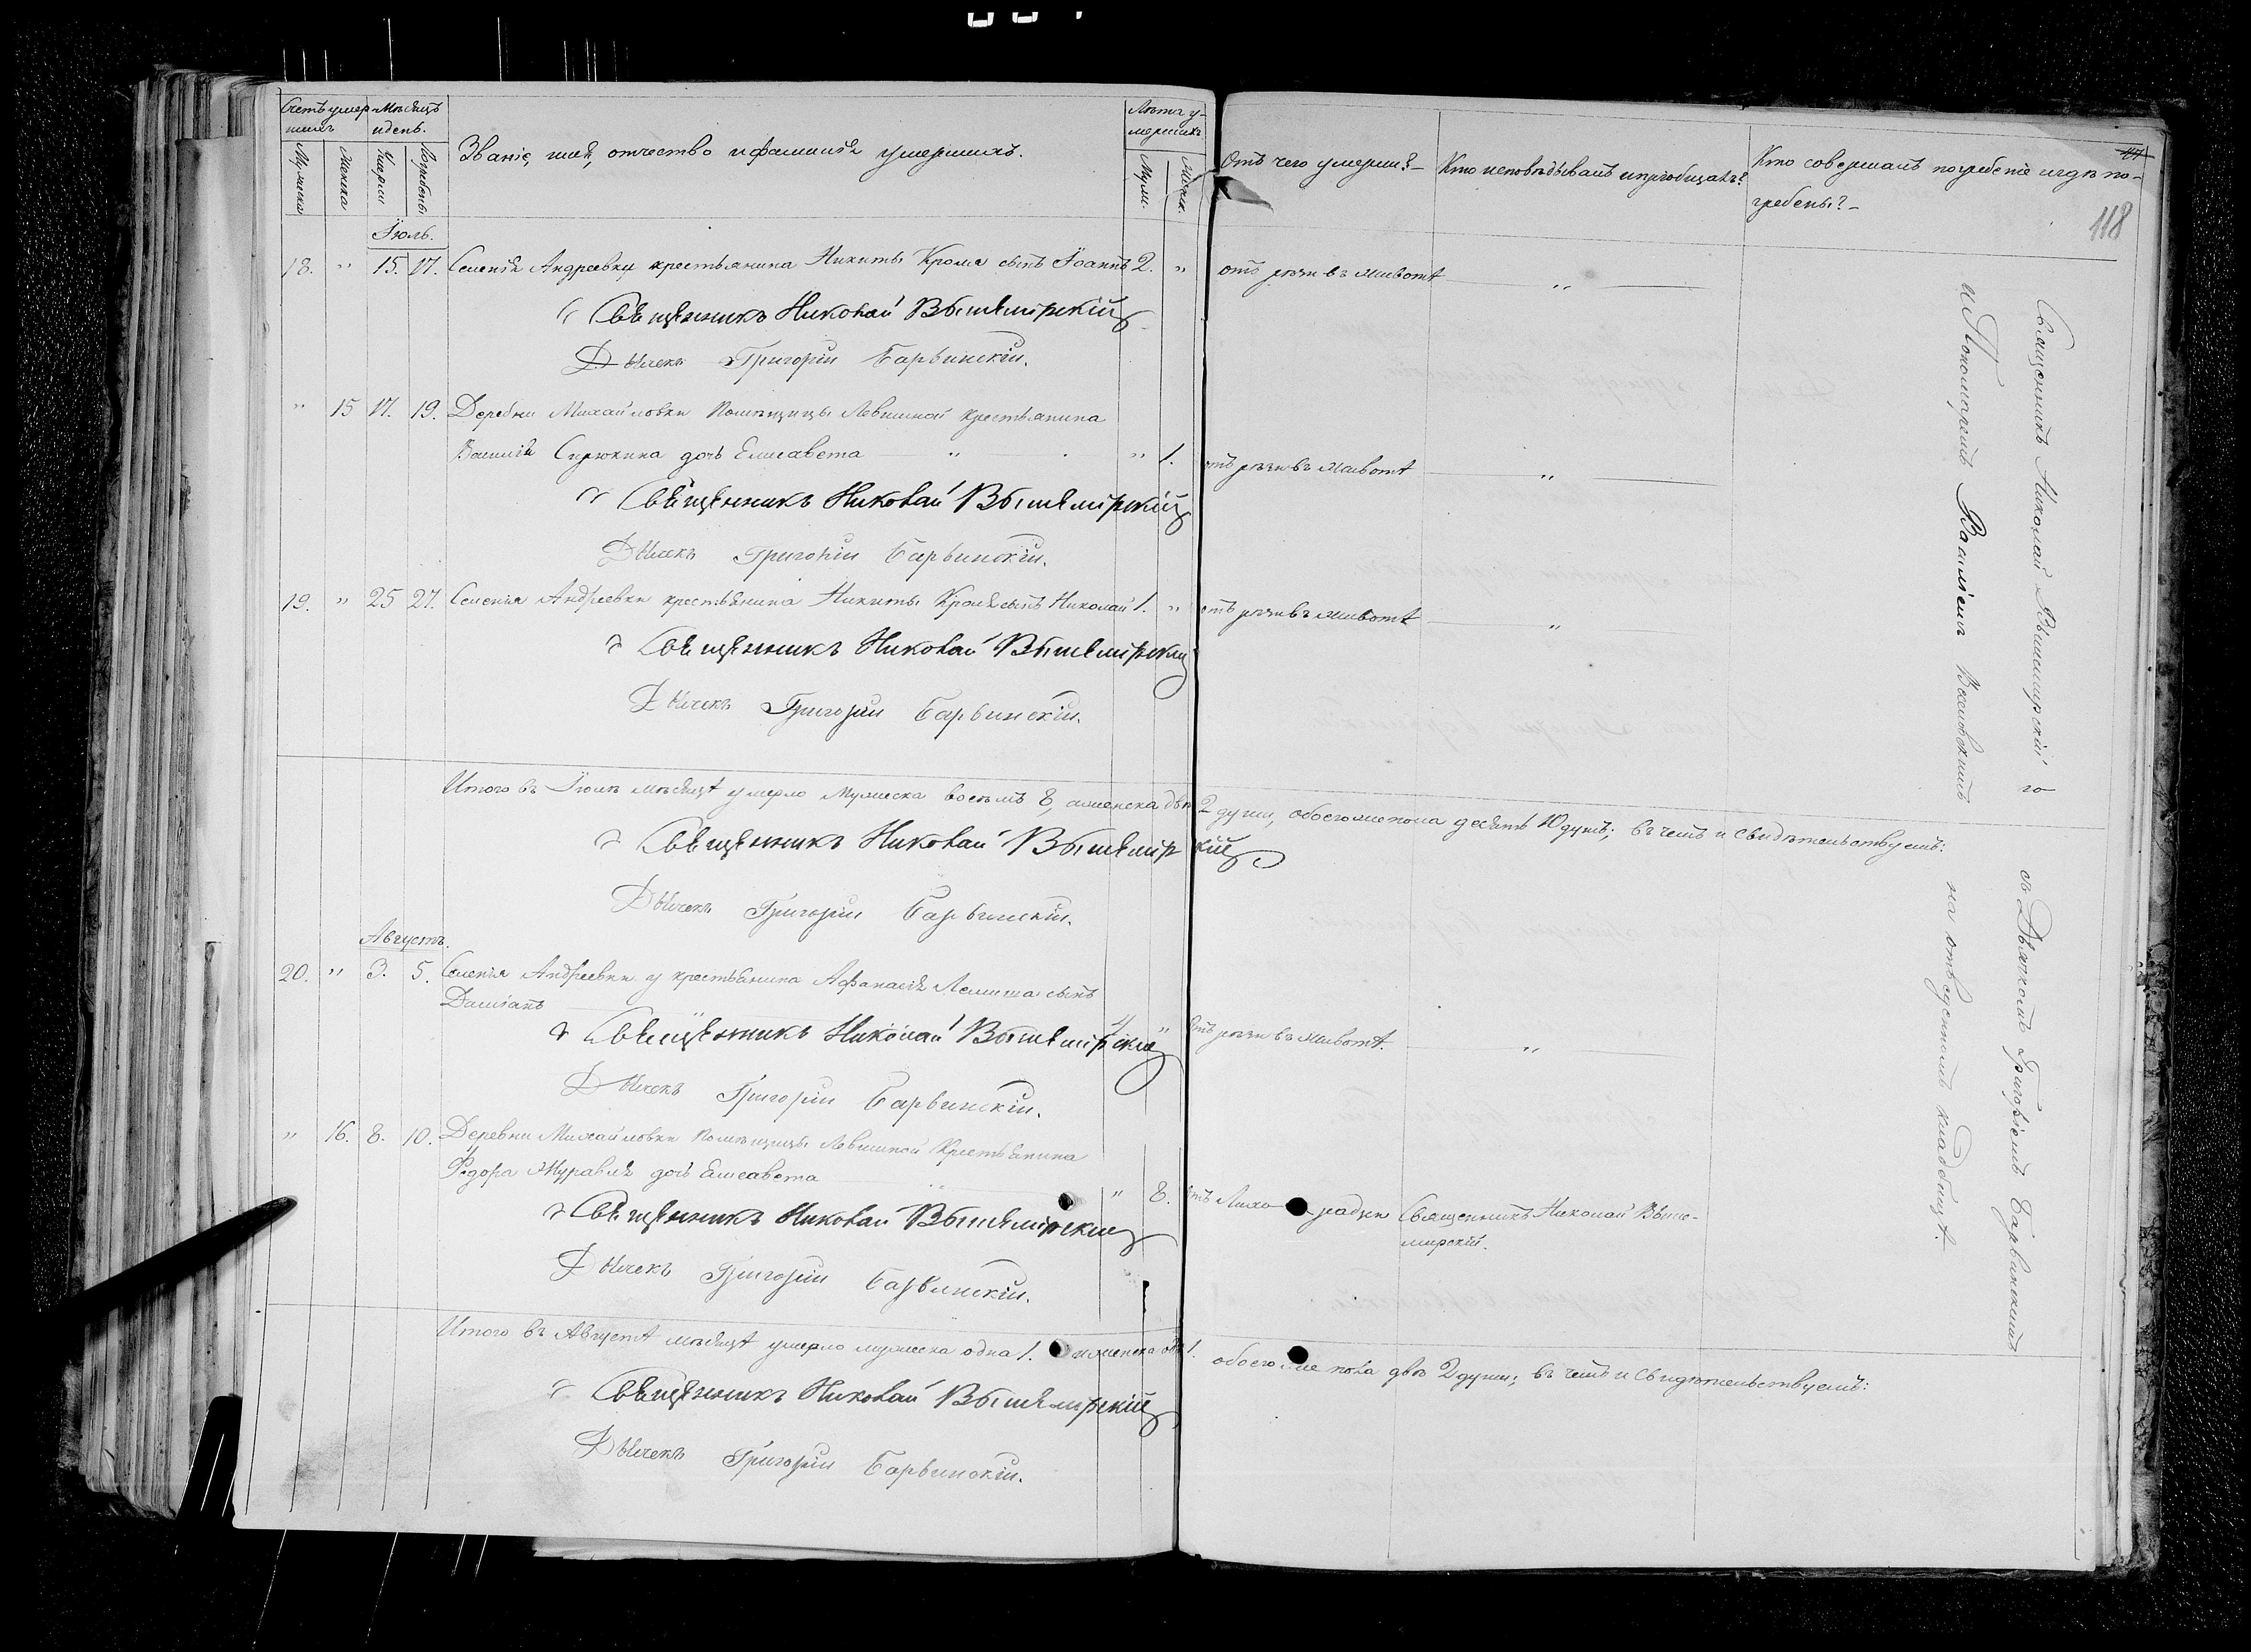 Счетъ умер- Мѣсяцъ
шихъ и день.
Мужеска
Женска
Умерли
Погребены
Званіе, имя, отчество и фамилія умершихъ.
Лѣта у-
мершихъ
Муж.
Женск.
Отъ чего умерли?
Кто исповѣдывалъ и пріобщалъ?
Кто совершалъ погребеніе и гдѣ по-
гребены?
118
Іюль.
18. " 15. 17. Селенія Андреевки крестьянина Никиты Крома сынъ Іоаннъ 2. " отъ рѣзи въ животѣ "
Священникъ Николай Вышемірскій
Дьячекъ Григорій Барвинскій.
" 15 17. 19. Деревни Михайловки помѣщицы Левшиной крестьянина
Василія Сирюкина дочь Елисавета " " 1. отъ рѣзи въ животѣ "
Священникъ Николай Вышемірскій
Дьячекъ Григорій Барвинскій.
19. " 25 27. Селенія Андреевки крестьянина Никиты Кромя сынъ Николай 1. " отъ рѣзи въ животѣ "
Священникъ Николай Вышемірскій
Дьячекъ Григорій Барвинскій.
Итого въ Іюлѣ мѣсяцѣ умерло мужеска восемь 8, а женска двѣ 2 души, обоего же пола десять 10 душъ; въ чемъ и свидѣтельствуемъ:
Священникъ Николай Вышемірскій
Дьячекъ Григорій Барвинскій.
Августъ.
20. " 3. 5. Селенія Андреевки у крестьянина Афанасія Лемиша сынъ
Даміанъ 4 " отъ рѣзи въ животѣ. "
Священникъ Николай Вышемірскій
Дьячекъ Григорій Барвинскій.
" 16. 8. 10. Деревни Михайловки помѣщицы Левшиной крестьянина
Федора Журавля дочь Елисавета " " 8. отъ Лихо-радки Священникъ Николай Выше-
мирскій.
Священникъ Николай Вышемірскій
Дьячекъ Григорій Барвинскій.
Итого въ Августѣ мѣсяцѣ умерло мужеска одна 1. женска одна 1. обоего же пола двѣ 2 души; въ чемъ и свидѣтельствуемъ:
Священникъ Николай Вышемірскій
Дьячекъ Григорій Барвинскій.
Священникъ Николай Вышемирскій съ Дьячкомъ Григоріемъ Барвинскимъ
и Пономаремъ Василіемъ на отведенномъ кладбищѣ.